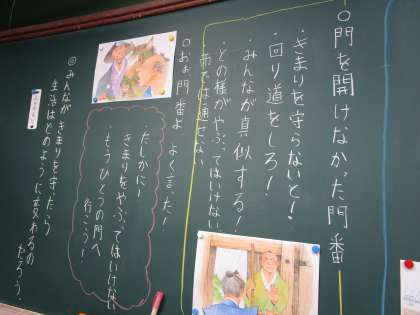 ○門を開けなかった門番
・きまりを守らないと！
・回り道をしろ！
・みんなが真似する！
・との様がやぶってはいけない
・雨では通せない
○おお門番よ よく言った！
・たしかに！
きまりをやぶってはいけない
・もうひとつの門へ
行こう！
◎みんながきまりを守ったら
生活はどのように変わるの
だろう。